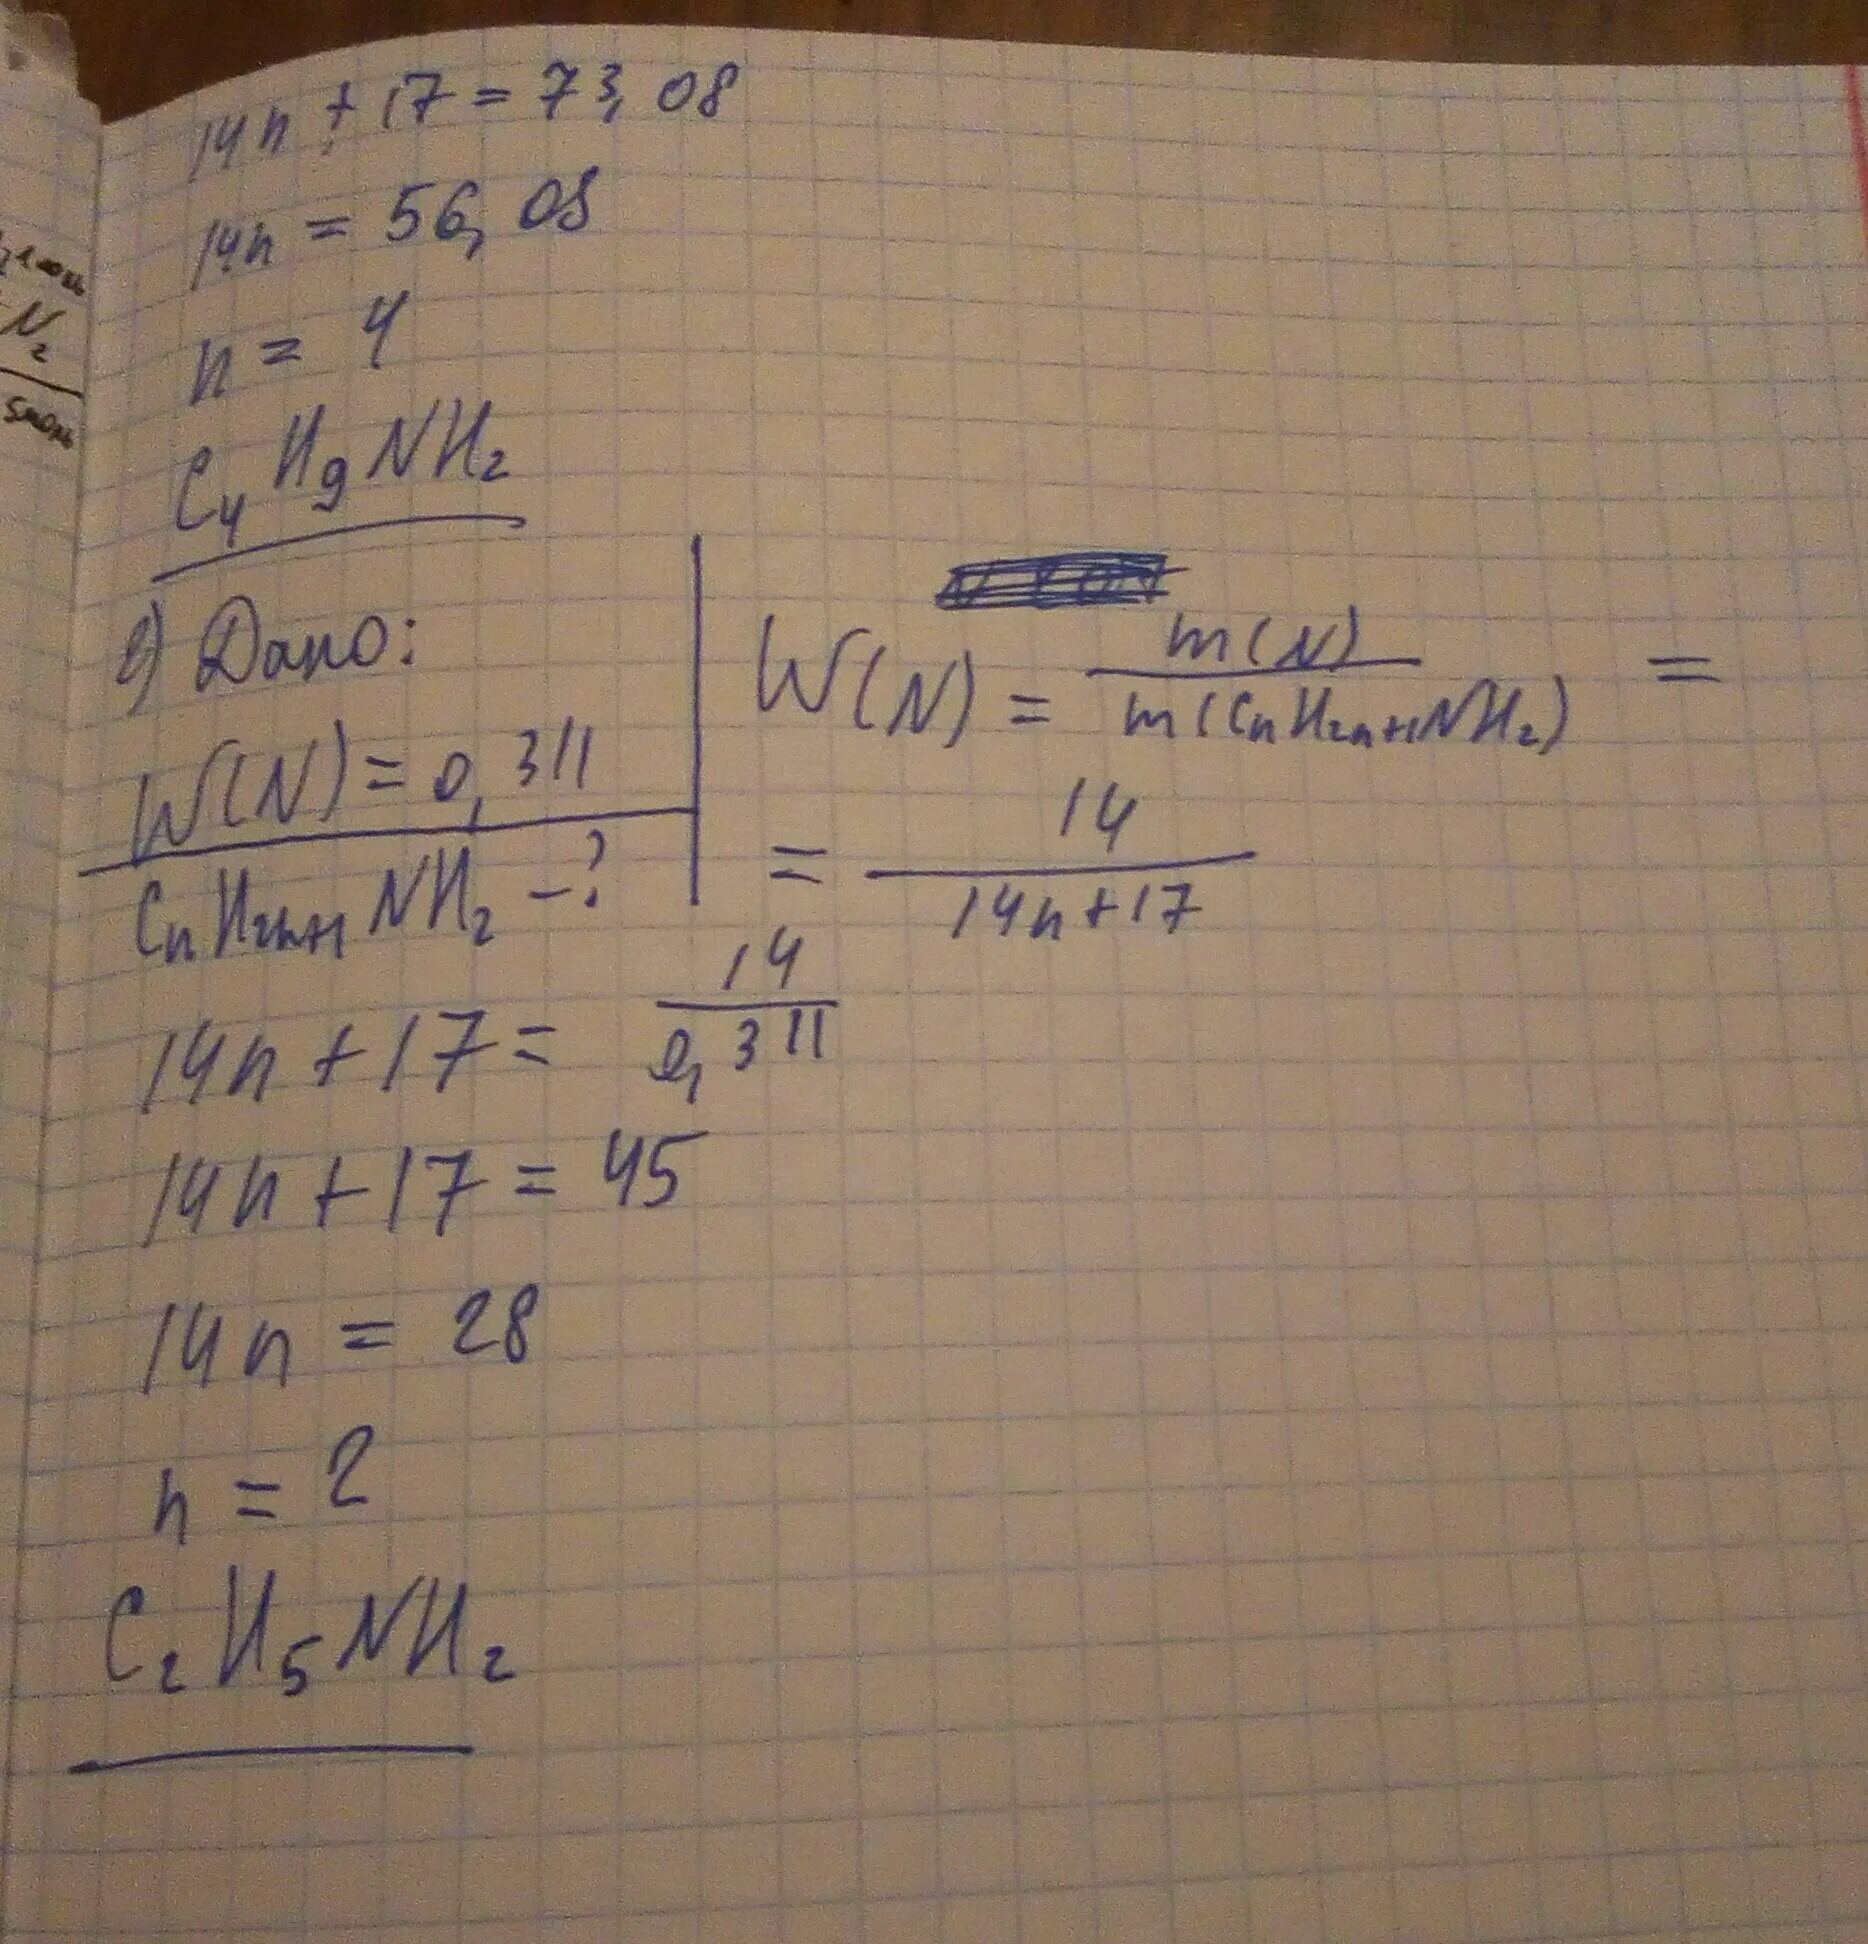 14n + 17 = 73,08
14n = 56,08
n = 4
C₄H₉NH₂
2) Дано:
W(N) = 0,311
CₙH₂ₙ₊₁NH₂ -?
W(N) = m(N) / m(CₙH₂ₙ₊₁NH₂) =
= 14 / 14n+17
14n + 17 = 14 / 0,311
14n + 17 = 45
14n = 28
n = 2
C₂H₅NH₂
N₂